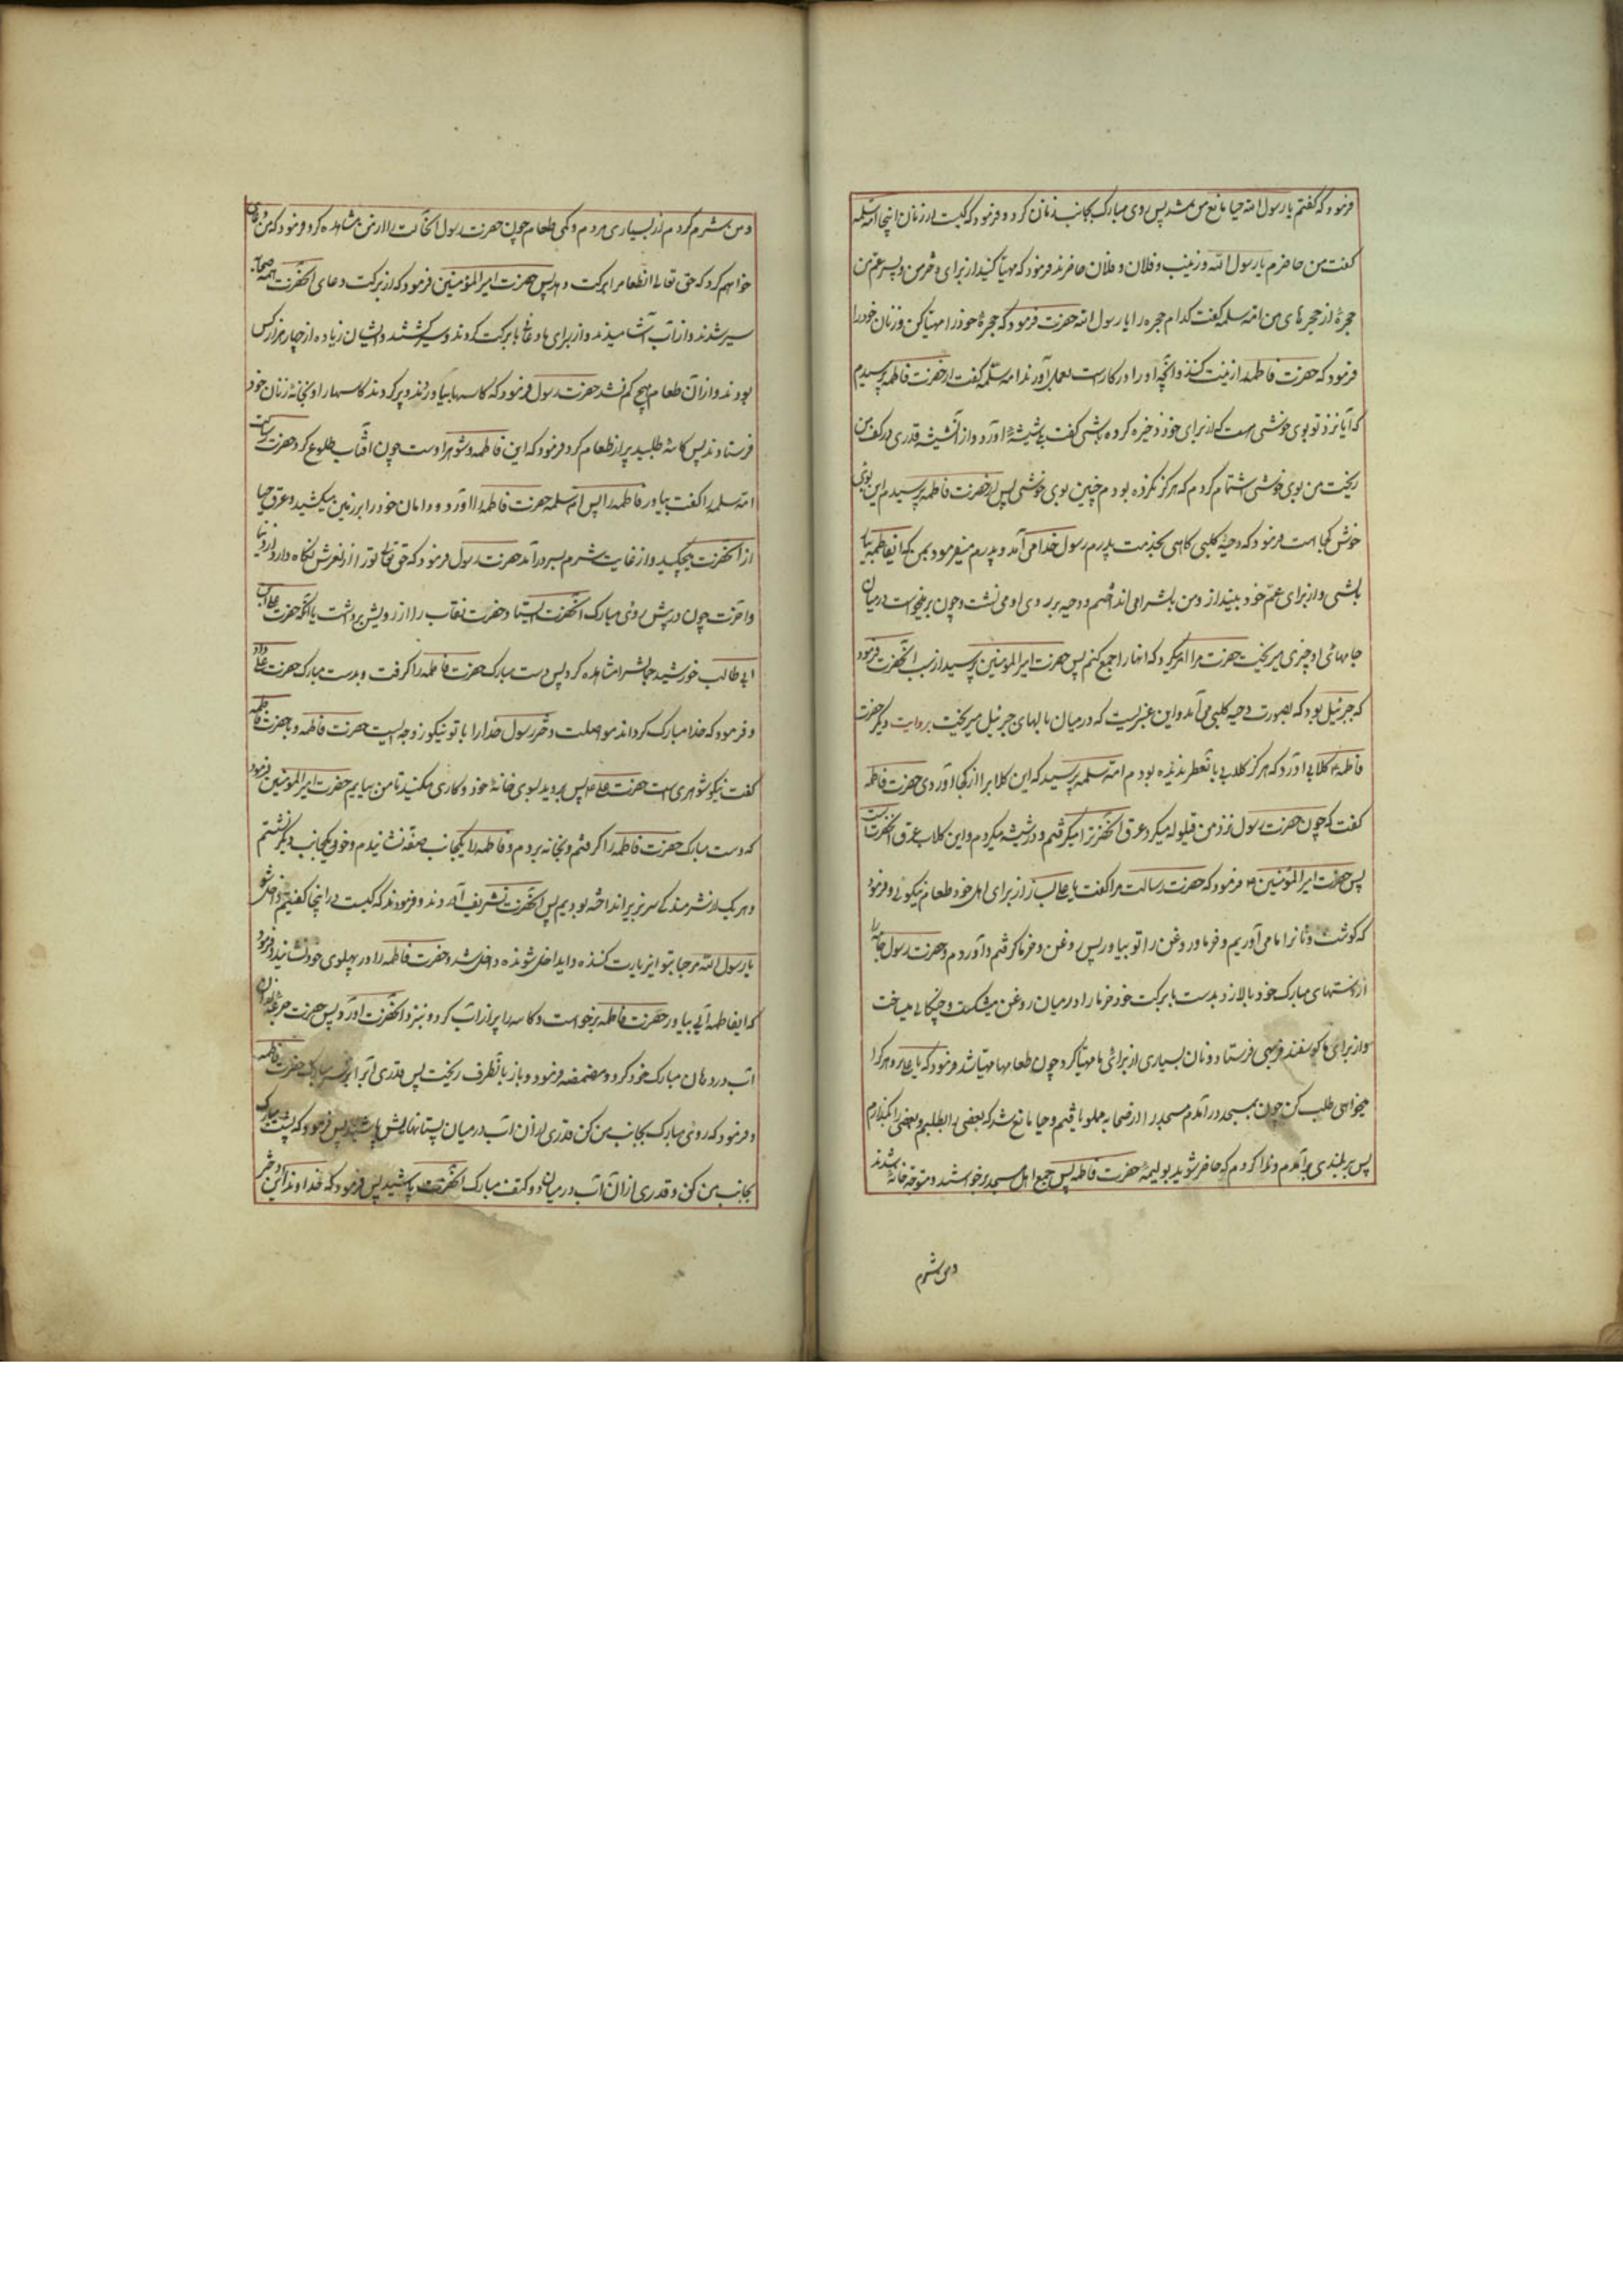 فرمود که گفتم یا رسول الله حیا مانع من شد پس روی مبارک بجانب زنان کرد و فرمود که کیست از زنان اینجا ام سلمه
گفت من حاضرم یا رسول الله و زینب و فلان و فلان حاضرند فرمود که مهیا کنید از برای دختر من و پسر عم من
حجرهٔ از حجرهای من ام سلمه گفت کدام حجره را یا رسول الله حضرت فرمود که حجرهٔ خود را مهیا کن و زنان خود را
فرمود که حضرت فاطمه را زینت کنند و آنچه او را در کارست بعمل آورند ام سلمه گفت از حضرت فاطمه پرسیدم
که آیا نزد تو بوی خوشی هست که از برای خود ذخیره کرده باشی گفت بلی شیشهٔ آورد و از آن شیشه قدری در کف من
ریخت من بوی خوشی استشمام کردم که هرگز نکرده بودم چنین بوی خوشی پس از حضرت فاطمه پرسیدم این بوی
خوش از کجا است فرمود که دحیهٔ کلبی گاهی بخدمت پدرم رسول خدا می آمد و پدرم میفرمود بمن که ایفاطمه بیا
بالشی و از برای عم خود بینداز و من بالش را می انداختم و دحیه بر روی او می نشست و چون بر میخواست در میان
جامهای او چیزی میریخت حضرت مرا امر میکرد که آنها را جمع کنم پس حضرت امیر المؤمنین پرسید از سبب آنحضرت فرمود
که جبرئیل بود که بصورت دحیه کلبی می آمد و این عنبریست که در میان بالهای جبرئیل میریخت بروایت دیگر حضرت
فاطمه گلابی آورد که هرگز گلاب بآن تعطر ندیده بودم ام سلمه پرسید که این گلاب را از کجا آوردی حضرت فاطمه
گفت که چون حضرت رسول نزد من قیلوله میکرد عرق آنحضرت را میگرفتم و در شیشه میکردم و این گلاب عرق آنحضرت است
پس حضرت امیر المؤمنین فرمود که حضرت رسالت مرا گفت یا علی بساز از برای اهل خود طعام نیکوئی و فرمود
که گوشت و نانرا ما می آوریم و خرما و روغن را تو بیاور پس روغن و خرما گرفتم و آوردم و حضرت رسول جامه را
از دستهای مبارک خود بالا زد و بدست با برکت خود خرما را در میان روغن میشکست و چنگالی میساخت
و از برای ما گوسفند فربهی فرستاد و نان بسیاری از برای ما مهیا کرد چون طعامها مهیا شد فرمود که یا علی برو هر که را
میخواهی طلب کن چون بمسجد در آمدم مسجد را از صحابه مملو یافتم و حیا مانع شد که بعضی را بطلبم و بعضی را بگذارم
پس بر بلندی بر آمدم و ندا کردم که حاضر شوید بولیمهٔ حضرت فاطمه پس جمیع اهل مسجد برخواستند و متوجه خانه شدند
و من شرم
و من شرم کردم از بسیاری مردم و کمی طعام چون حضرت رسول آنحالت را از من مشاهده کرد و فرمود که من دعای
خواهم کرد که حق تعالی آنطعام را برکت دهد پس حضرت امیر المؤمنین فرمود که از برکت دعای آنحضرت همه صحابه
سیر شدند و از آب آشامیدند و از برای ما دعا با برکت کردند و سیر گشتند و ایشان زیاده از چهار هزار کس
بودند و از آن طعام هیچ کم نشد حضرت رسول فرمود که کاسها بیاورند و پر کردند کاسها را و بخانهٔ زنان خود
فرستادند پس کاسهٔ طلبید پر از طعام کرد فرمود که این فاطمه و شوهر اوست چون آفتاب طلوع کرد حضرت رسالت
ام سلمه را گفت بیاور فاطمه را پس ام سلمه حضرت فاطمه را آورد و دامان خود را بر زمین میکشید و عرق حیا
از آنحضرت میچکید و از غایت شرم بسر در آمد حضرت رسول فرمود که حق تعالی تو را از لغزش نگاه دارد در دنیا
و آخرت چون در پیش روی مبارک آنحضرت ایستاد حضرت نقاب را از رویش برداشت تا آنکه حضرت علی بن
ابی طالب خورشید جمالش را مشاهده کرد پس دست مبارک حضرت فاطمه را گرفت و بدست مبارک حضرت علی داد
و فرمود که خدا مبارک گرداند مواصلت دختر رسول خدا را با تو نیکو زوجه ایست حضرت فاطمه و بحضرت فاطمه
گفت نیکو شوهری است حضرت علی پس بروید بسوی خانهٔ خود و کاری مکنید تا من بیایم حضرت امیر المؤمنین فرمود
که دست مبارک حضرت فاطمه را گرفتم و بخانه بردم و فاطمه را یکجانب صفه نشانیدم و خود بجانب دیگر نشستم
و هر یک از شرمندگی سر بزیر انداخته بودیم پس آنحضرت تشریف آوردند و فرمودند که کیست در اینجا گفتیم داخل شو
یا رسول الله مرحبا بتو ای زیارت کننده و ای داخل شونده داخل شد و حضرت فاطمه را در پهلوی خود نشانید و فرمود
که ایفاطمه آبی بیاور حضرت فاطمه برخواست و کاسه را پر از آب کرد و بنزد آنحضرت آورد پس حضرت جرعهٔ از آن
آب در دهان مبارک خود کرد و مضمضه فرمود و باز بآنظرف ریخت پس قدری آب را بر سر مبارک حضرت فاطمه
و فرمود که روی مبارک بجانب من کن قدری از آن آب در میان پستانهایش پاشید پس فرمود که پشت مبارک
بجانب من کن و قدری از آن آب در میان دو کتف مبارک آنحضرت پاشید پس فرمود که خداوندا این دختر